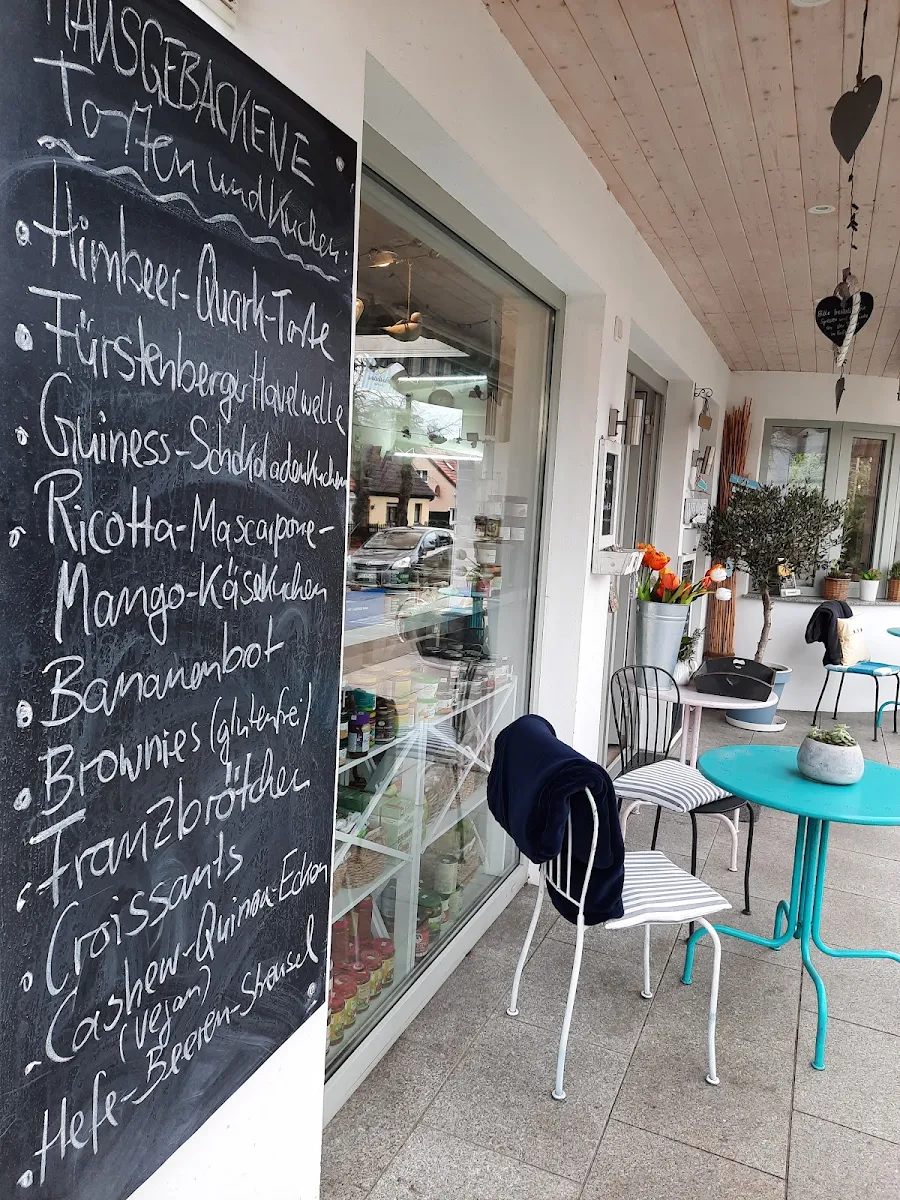 HAUSGEBACKENE
Torten und Kuchen
Himbeer-Quark-Torte
Fürstenberger Havelwelle
Guiness-Schokoladenkuchen
Ricotta-Mascarpone-
Mango-Käsekuchen
Bananenbrot
Brownies (glutenfrei)
Franzbrötchen
Croissants
Cashew-Quinoa-Ecken
(vegan)
Hefe-Beeren-Streusel